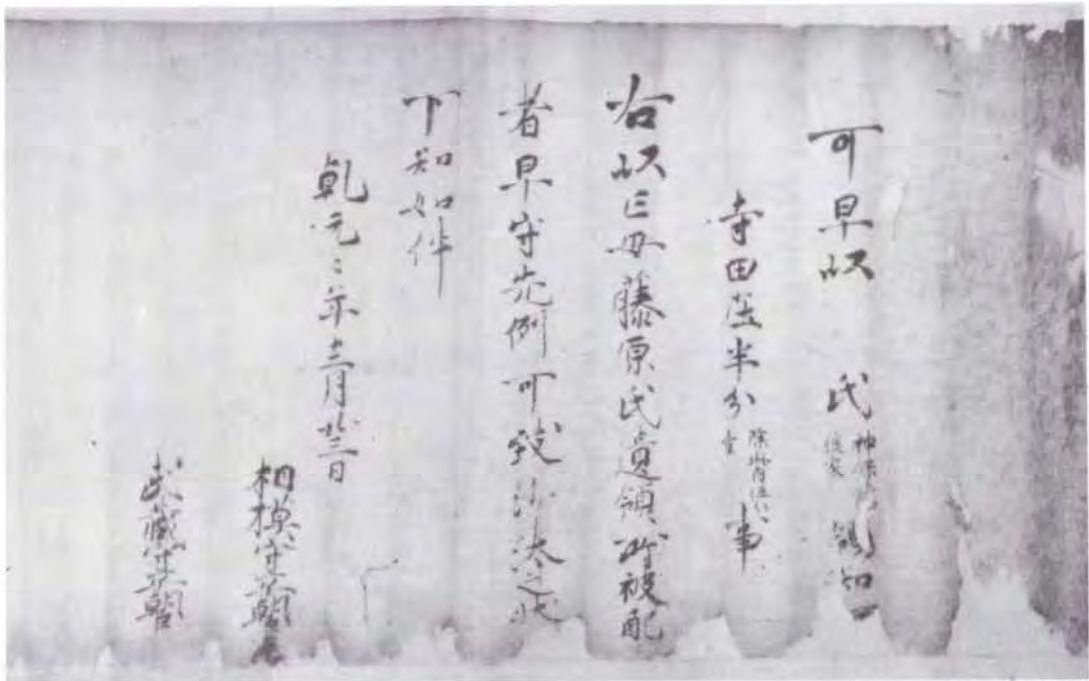 可早以 氏 領知
寺田 半分 事
右以亡母藤原氏遺領所被配
者早守先例可致沙汰之状
下知如件
乾元々年十二月廿三日
相模守平朝臣
武蔵守平朝臣